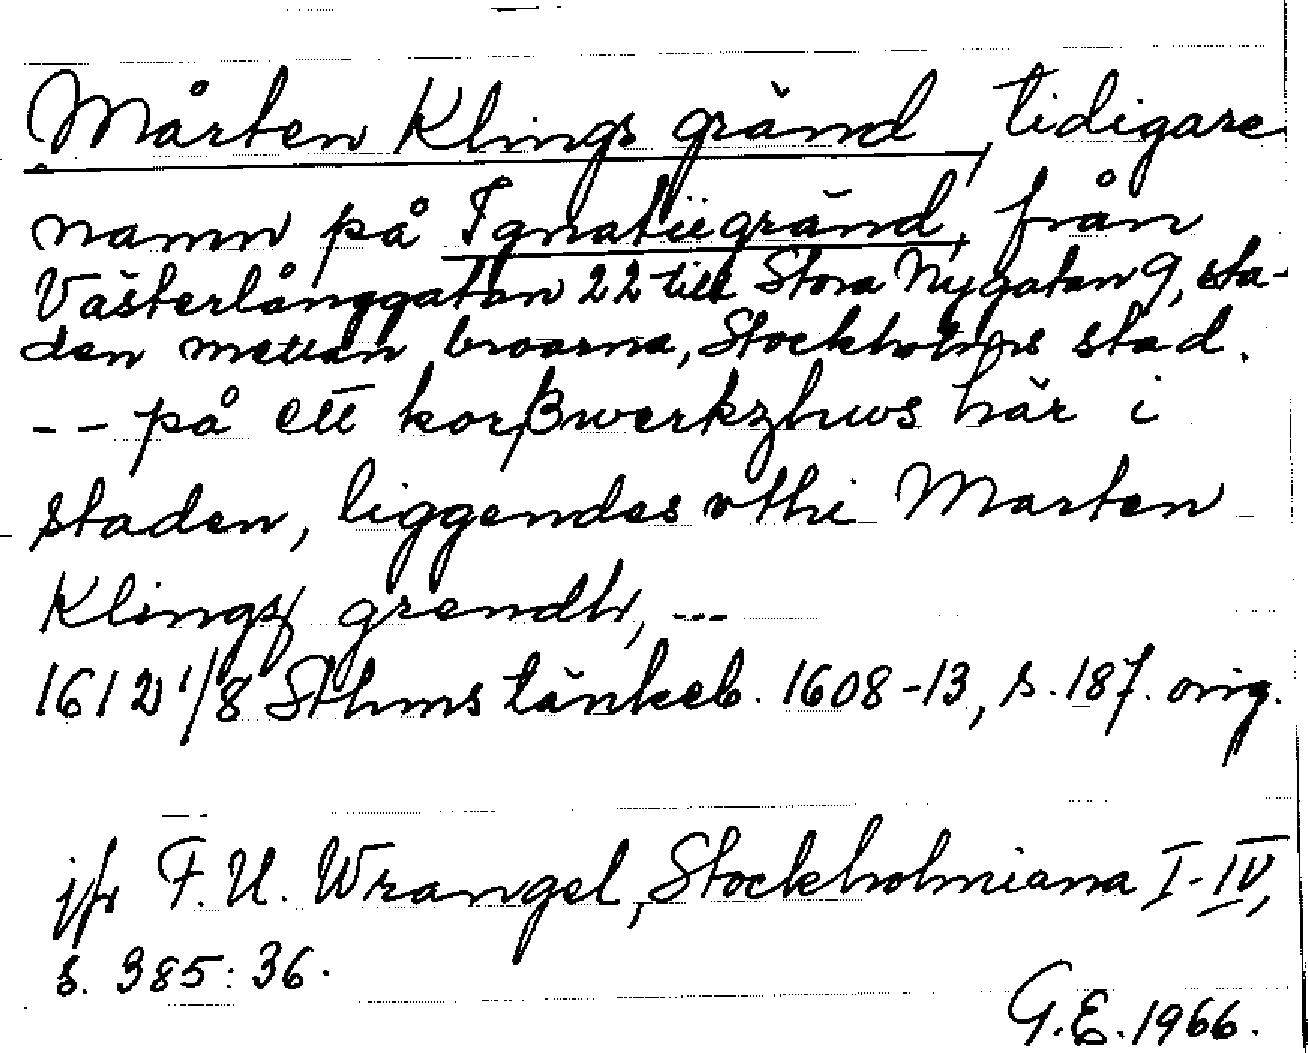 Mårten Klings gränd, tidigare
namn på Ignatiigränd, från
Västerlånggatan 22 till Stora Nygatan 9, sta-
den mellan broarna, Stockholms stad.
-- på ett korßwerkzhws här i
staden, liggendes vthi Marten
Klings grendh, ---
1612 1/8 Sthms tänkeb. 1608-13, s. 187. orig.
jfr F.U. Wrangel, Stockholmiana I-IV,
s. 385: 36.
G.E. 1966.